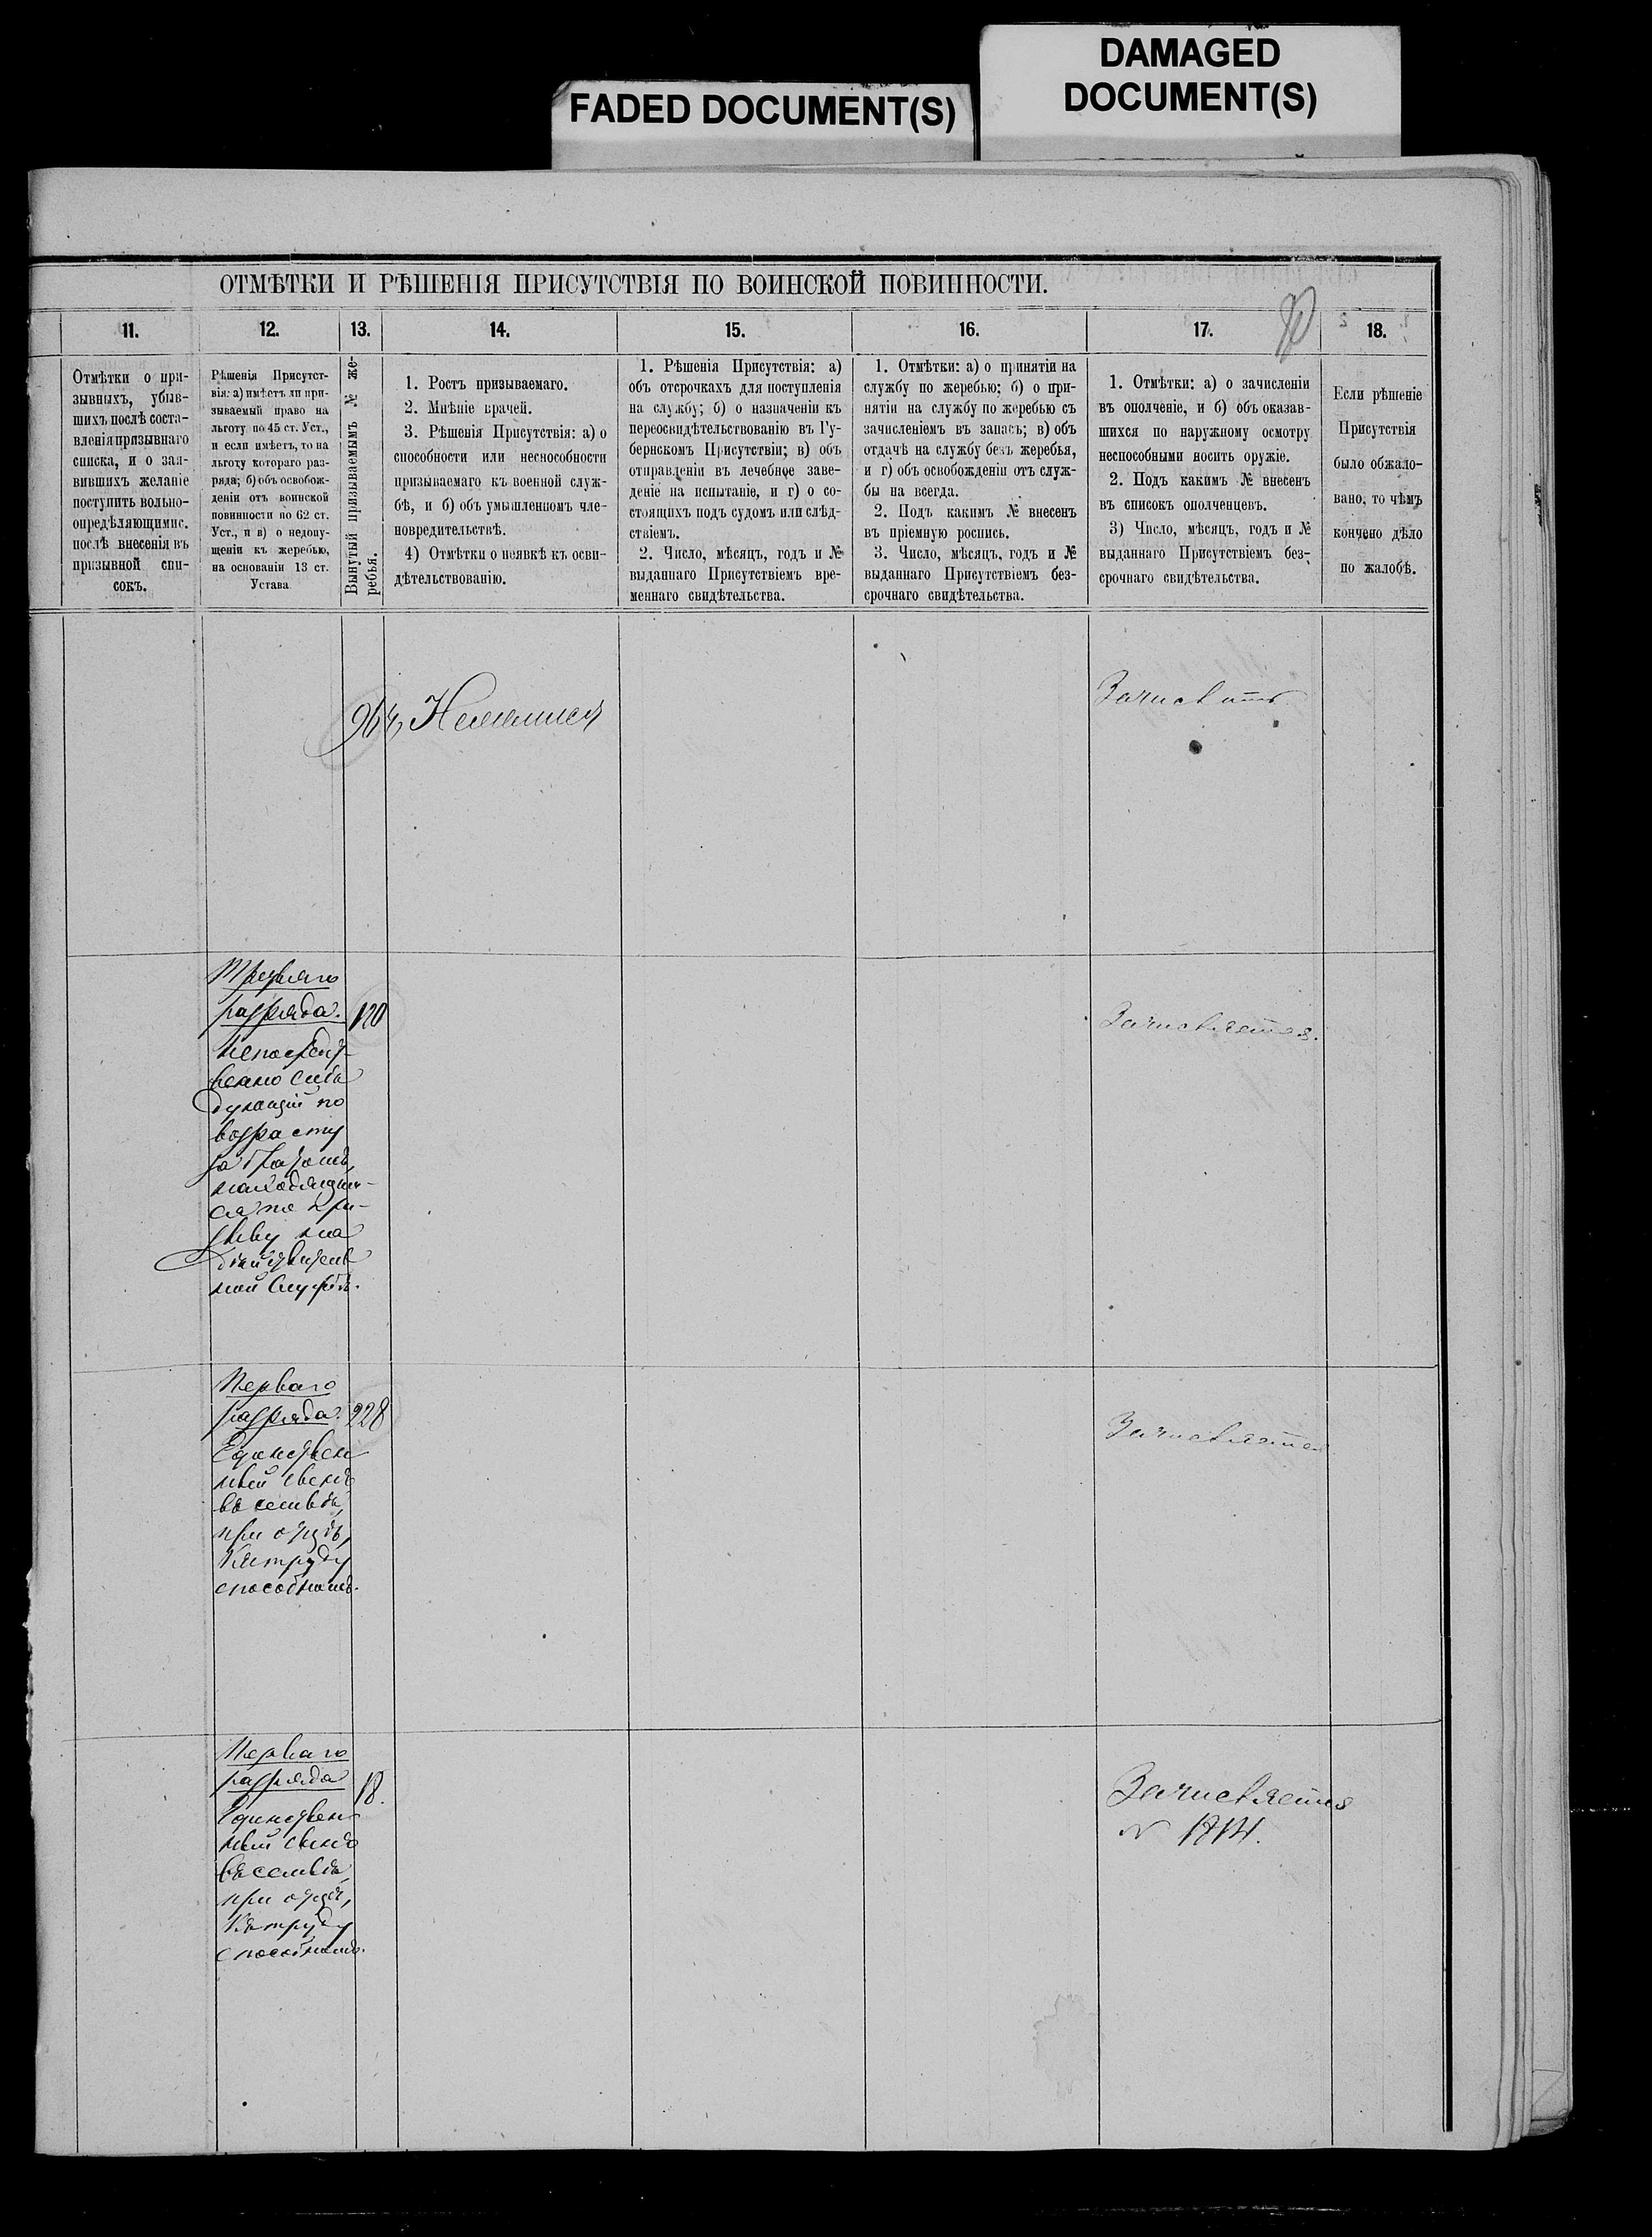 FADED DOCUMENT(S)
DAMAGED
DOCUMENT(S)
ОТМѢТКИ И РѢШЕНІЯ ПРИСУТСТВІЯ ПО ВОИНСКОЙ ПОВИННОСТИ.
11.
12.
13.
14.
15.
16.
17.
18.
Отмѣтки о при-
зывныхъ, убыв-
шихъ послѣ соста-
вленія призывнаго
списка, и о зая-
вившихъ желаніе
поступить вольно-
опредѣляющимис.
послѣ внесенія въ
призывной спи-
сокъ.
Рѣшенія Присутст-
вія: а) имѣетъ ли при-
зываемый право на
льготу по 45 ст. Уст.,
и если имѣетъ, то на
льготу котораго раз-
ряда; б) объ освобож-
деніи отъ воинской
повинности по 62 ст.
Уст., и в) о недопу-
щеніи къ жеребью,
на основаніи 13 ст.
Устава
Вынутый призываемымъ № же-
ребья.
1. Ростъ призываемаго.
2. Мнѣніе врачей.
3. Рѣшенія Присутствія: а) о
способности или неспособности
призываемаго къ военной служ-
бѣ, и б) объ умышленномъ чле-
новредительствѣ.
4) Отмѣтки о неявкѣ къ осви-
дѣтельствованію.
1. Рѣшенія Присутствія: а)
объ отсрочкахъ для поступленія
на службу; б) о назначеніи къ
переосвидѣтельствованію въ Гу-
бернскомъ Присутствіи; в) объ
отправленіи въ лечебное заве-
деніе на испытаніе, и г) о со-
стоящихъ подъ судомъ или слѣд-
ствіемъ.
2. Число, мѣсяцъ, годъ и №
выданнаго Присутствіемъ вре-
меннаго свидѣтельства.
1. Отмѣтки: а) о принятіи на
службу по жеребью; б) о при-
нятіи на службу по жеребью съ
зачисленіемъ въ запасъ; в) объ
отдачѣ на службу безъ жеребья,
и г) объ освобожденіи отъ служ-
бы на всегда.
2. Подъ какимъ № внесенъ
въ пріемную роспись.
3. Число, мѣсяцъ, годъ и №
выданнаго Присутствіемъ без-
срочнаго свидѣтельства.
1. Отмѣтки: а) о зачисленіи
въ ополченіе, и б) объ оказав-
шихся по наружному осмотру
неспособными носить оружіе.
2. Подъ какимъ № внесенъ
въ списокъ ополченцевъ.
3) Число, мѣсяцъ, годъ и №
выданнаго Присутствіемъ без-
срочнаго свидѣтельства.
Если рѣшеніе
Присутствія
было обжало-
вано, то чѣмъ
кончено дѣло
по жалобѣ.
Третьяго
разряда.
120
Непосредст-
венно слѣ
дующій по
возрасту
за братомъ,
находящим-
ся по при-
зыву на
дѣйствитель
ной службѣ.
Зачисляется.
Перваго
разряда.
228
Единствен
ный сынъ
въ семьѣ,
при отцѣ,
къ труду
способномъ.
Зачисляется
Перваго
разряда
18.
Единствен
ный сынъ
въ семьѣ,
при отцѣ,
къ труду
способномъ.
Зачисляется
№ 1814.